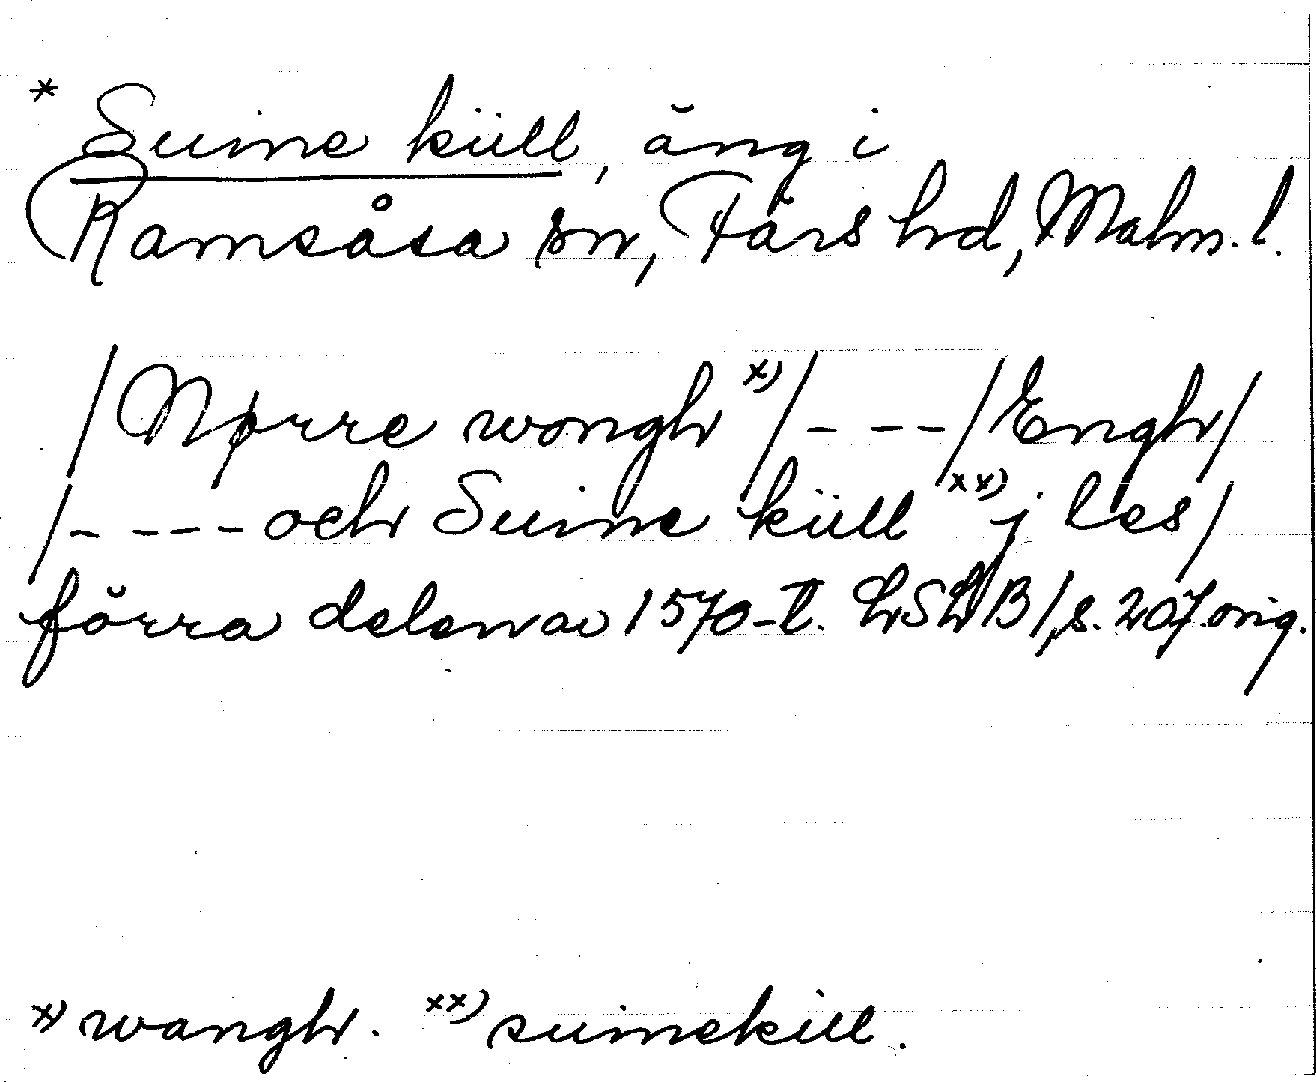 * Suine küll, äng i
Ramsåsa sn, Färs hd, Malm. l.
/Nørre wongh x)/- - -/Engh/
/- - - - och Suine küll xx) j les/
förra delen av 1570-t. LSLB/, s. 207 orig.
x) wangh. xx) suinekill.